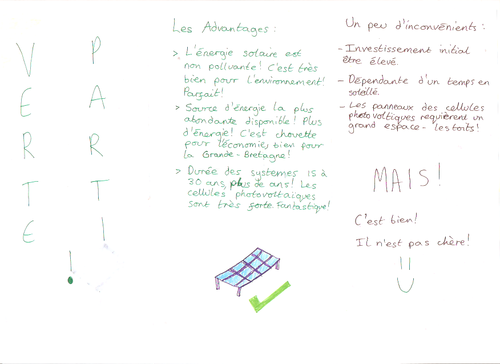 VERTE!
PARTI!
Les Advantages :
> L'énergie solaire est
non polluante! C'est très
bien pour l'environment!
Parfait!
> Source d'énergie la plus
abondante disponible! Plus
d'énergie! C'est chouette
pour l'économie, bien pour
la Grande-Bretagne!
> Durée des systemes 15 à
30 ans, plus de ans! Les
cellules photovoltaiques
sont très forte. Fantastique!
Un peu d'inconvénients :
- Investissement initial
être élevé.
- Dépendante d'un temps en
soleillé.
- Les panneaux des cellules
photovoltiques requièrent un
grand espace - les toits!
MAIS!
C'est bien!
Il n'est pas chère!